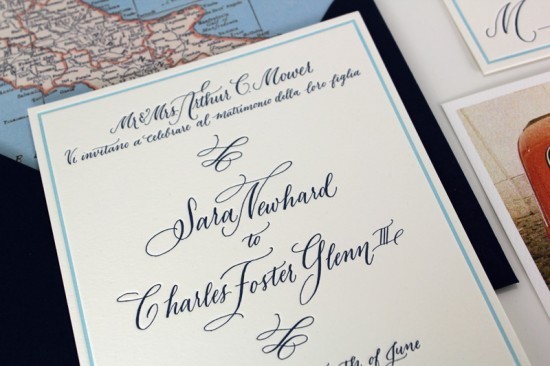 Mr & Mrs Arthur C Mower
Vi invitano a celebrare al matrimonio della loro figlia
Sara Newhard
to
Charles Foster Glenn III
of June
M